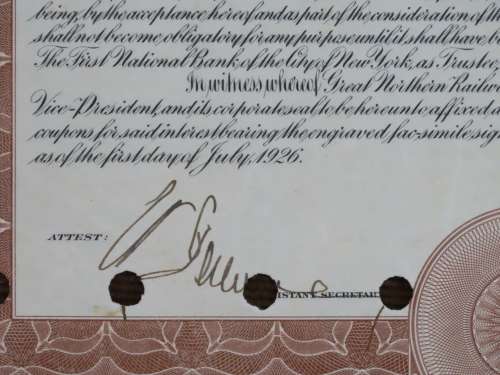 being, by the acceptance hereof and as part of the consideration of the
shall not become obligatory for any purpose until it shall have be
The First National Bank of the City of New York, as Trustee,
In witness whereof Great Northern Railwa
Vice-President, and its corporate seal to be hereunto affixed a
coupons for said interest bearing the engraved, fac-simile sig
as of the first day of July, 1926.
ATTEST:
ISTANT SECRETAR